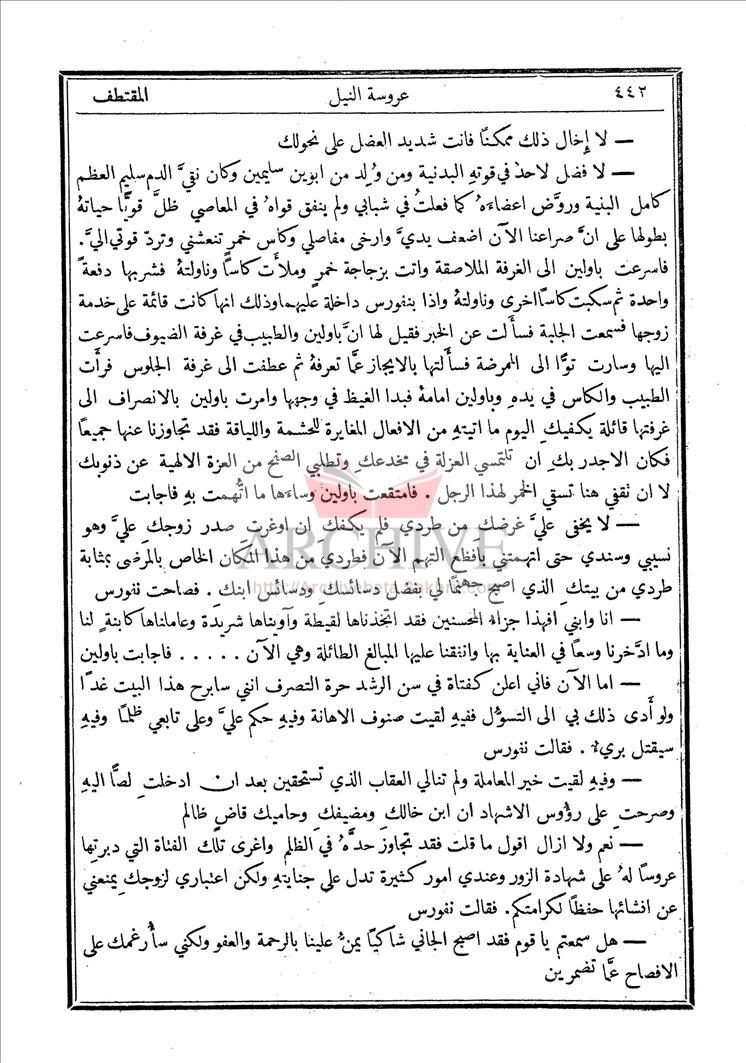 ٤٤٢ عروسة النيل المقتطف
— لا إخال ذلك ممكنًا فانت شديد العضل على نحولك
— لا فضل لاحدٍ في قوتهِ البدنية ومن وُلد من ابوين سليمين وكان نقيَّ الدم سليم العظم
كامل البنية وروَّض اعضاءَهُ كما فعلتُ في شبابي ولم ينفق قواهُ في المعاصي ظلَّ قويًّا حياتهُ
بطولها على انَّ صراعنا الآن اضعف يديَّ وارخى مفاصلي وكاس خمرٍ تنعشني وتردّ قوتي اليَّ.
فاسرعت باولين الى الغرفة الملاصقة واتت بزجاجة خمرٍ وملأَت كاسًا وناولتهُ فشربها دفعةً
واحدة ثم سكبت كاسًا اخرى وناولتهُ واذا بنفورس داخلة عليهما وذلك انها كانت قائمة على خدمة
زوجها فسمعت الجلبة فسأَلت عن الخبر فقيل لها انَّ باولين والطبيب في غرفة الضيوف فاسرعت
اليها وسارت توًّا الى الممرضة فسأَلتها بالايجاز عمَّا تعرفهُ ثم عطفت الى غرفة الجلوس فرأَت
الطبيب والكاس في يدهِ وباولين امامهُ فبدا الغيظ في وجهها وامرت باولين بالانصراف الى
غرفتها قائلة يكفيكِ اليوم ما اتيتهِ من الافعال المغايرة للحشمة واللياقة فقد تجاوزنا عنها جميعًا
فكان الاجدر بكِ ان تلتمسي العزلة في مخدعكِ وتطلبي الصفح من العزة الالهية عن ذنوبك
لا ان تقفي هنا تسقي الخمر لهذا الرجل . فامتقعت باولين وساءَها ما اتُّهمت بهِ فاجابت
— لا يخفى عليَّ غرضكِ من طردي فلم يكفكِ ان اوغرتِ صدر زوجكِ عليَّ وهو
نسيبي وسندي حتى اتهمتني بافظع التهم الآن فطردي من هذا المكان الخاص بالمرضى بمثابة
طردي من بيتكِ الذي اصبح جهنمًا لي بفضل دسائسكِ ودسائس ابنكِ . فصاحت نفورس
— انا وابني افهذا جزاءُ المحسنين فقد اتخذناها لقيطة وآويناها شريدة وعاملناها كابنةٍ لنا
وما ادَّخرنا وسعًا في العناية بها وانفقنا عليها المبالغ الطائلة وهي الآن . . . . . فاجابت باولين
— اما الآن فاني اعلن كفتاة في سن الرشد حرة التصرف انني سابرح هذا البيت غدًا
ولو أَدى ذلك بي الى التسوُّل ففيهِ لقيت صنوف الاهانة وفيهِ حكم عليَّ وعلى تابعي ظلمًا وفيهِ
سيقتل بريءٌ . فقالت نفورس
— وفيهِ لقيت خير المعاملة ولم تنالي العقاب الذي تستحقين بعد ان ادخلتِ لصًّا اليهِ
وصرحتِ على رؤُوس الاشهاد ان ابن خالكِ ومضيفكِ وحاميك قاضٍ ظالم
— نعم ولا ازال اقول ما قلت فقد تجاوز حدَّهُ في الظلم واغرى تلك الفتاة التي دبرتِها
عروسًا لهُ على شهادة الزور وعندي امور كثيرة تدل على جنايتهِ ولكن اعتباري لزوجكِ يمنعني
عن افشائها حفظًا لكرامتكم. فقالت نفورس
— هل سمعتم يا قوم فقد اصبح الجاني شاكيًا يمنُّ علينا بالرحمة والعفو ولكني سأُرغمك على
الافصاح عمَّا تضمرين
ARCHIVE